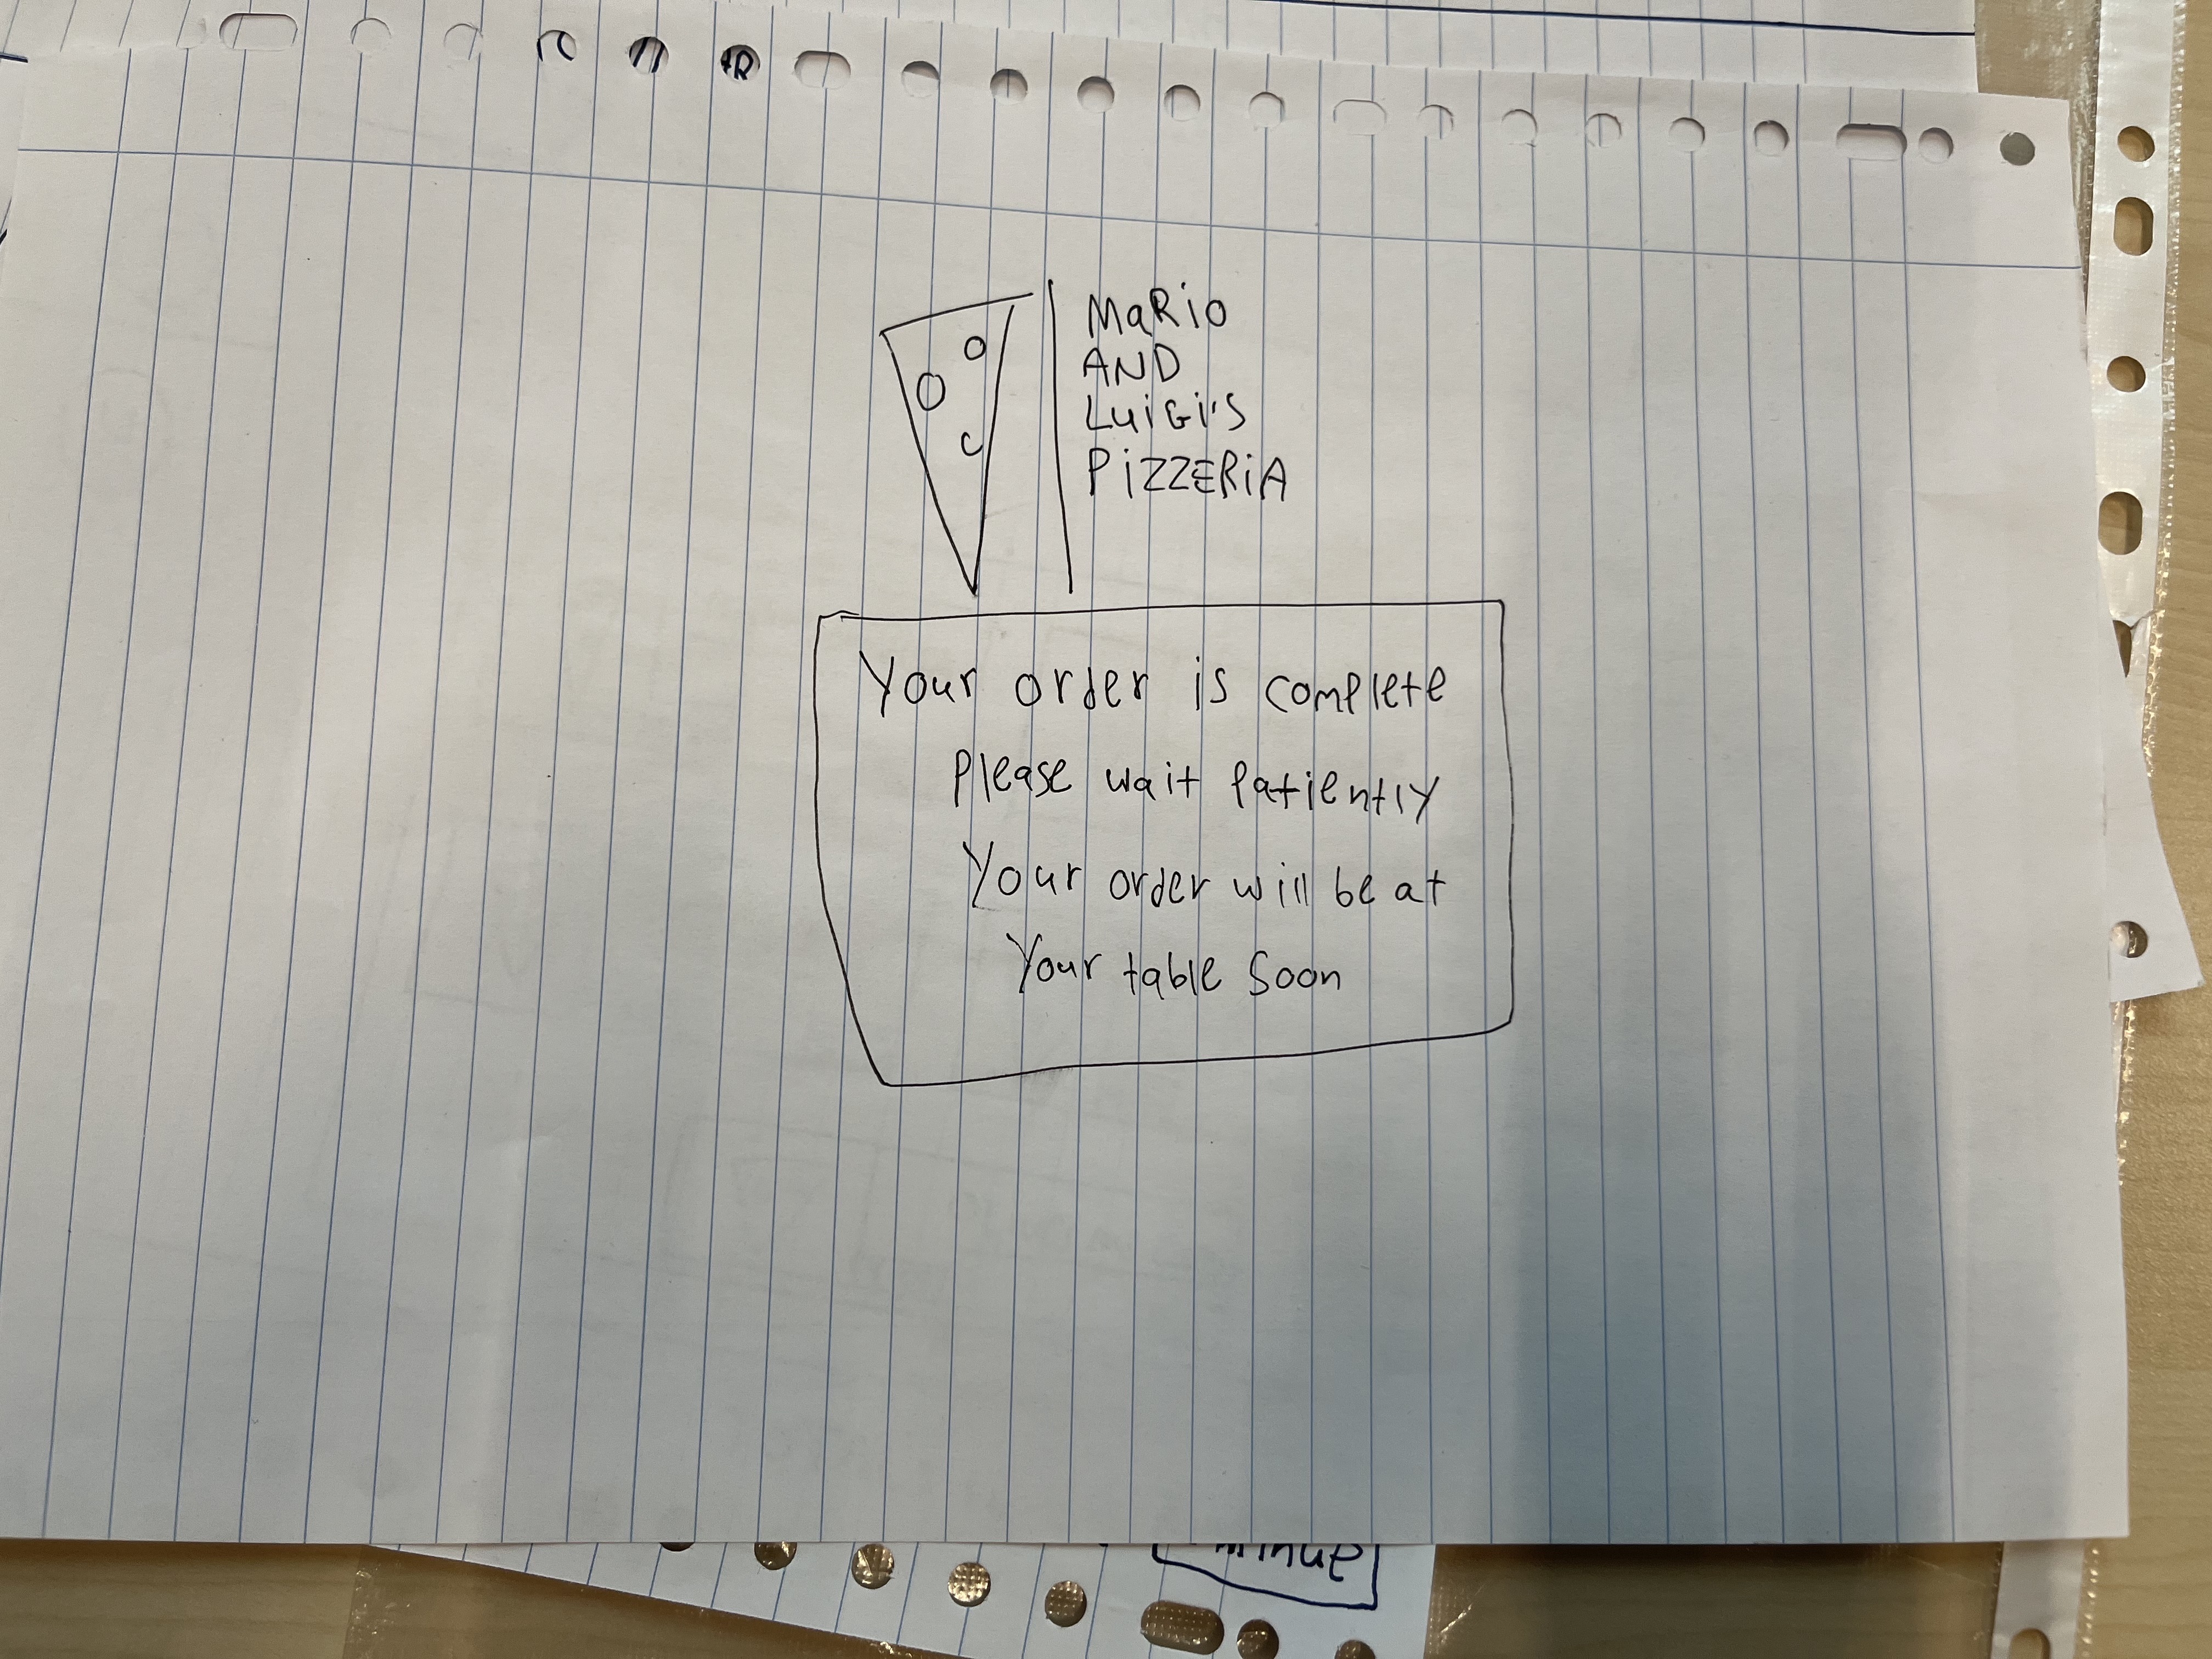 MaRio
AND
LuiGi's
PiZZERiA
Your order is complete
Please wait Patiently
Your order will be at
Your table Soon